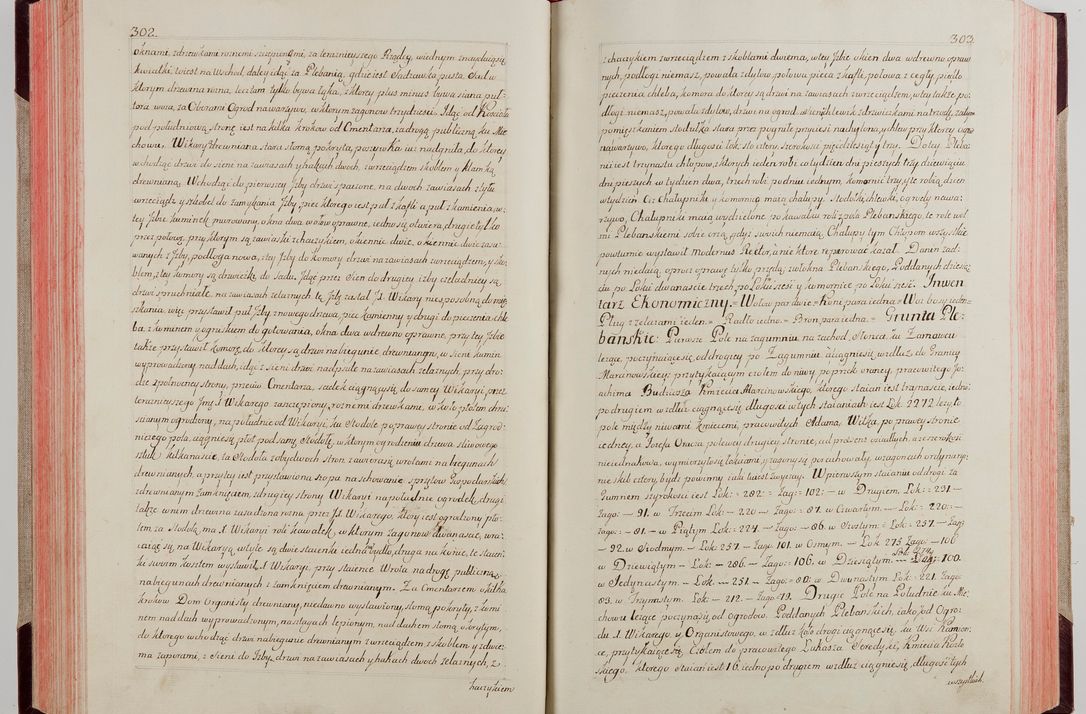 302.
oknami, zdrewkami roznemi szczepionemi, za teraznieyszego Rządcę, w iednym znayduią się
kwiatki, to iest na Wschod, daley idąc za Plebanią, gdzie iest Sadzawka pusta. Sad w
ktorym drewna rosną, lecz tam tylko bywa łąka, z ktorey plus minus bywa siana pul-
tora woza, za Oborami Ogrod na warzywo, w ktorym zagonow trzydziesci. Idąc od Kościoła
pod południową stronę iest na kilka krokow od Cmentarza, za drogą publiczną ku Mie-
chowu. Wikaryi drewniana stara słomą pokryta, poszywka iuż nadgniła, do ktorey
wchodząc drzwi do sieni na zawiasach y hakach dwoch, z wrzeciądzem skoblem y klamką
drewnianą. Wchodząc do pierwszey Izby drzwi spaione, na dwoch zawiasach z tyłu
wrzeciądz y skobel do zamykania Izby, piec ktorego iest puł z kafli a puł z kamienia, w
tey Izbie kominek murowany, okna dwa w ołow oprawne, iedno się otwiera, drugie tylko
przez połowę, przy ktorym są zawiaski z haczykiem, okiennic dwie, okiennic dwie zasu-
wanych z Izby, podłoga nowa, z tey Izby do komory drzwi na zawiasach z wrzeciądzem, y sko-
blem, z tey komory są drzwiczki do Sadu. Idąc przez Sien do drugiey izby czeladniey są
drzwi spruchniałe, na zawiasach żelaznych tę Izbę zastał J. Wikary niesposobną do mie-
szkania, więc przystawił puł Izby z nowego drzewa, piec kamienny y drugi do pieczenia chle-
ba, z kominem y ogniskiem do gotowania, okna dwa w drewno oprawne, przy tey Izbie
także przystawił komorę, do ktorey są drzwi na biegunie drewnianym, w sieni komin
wyprowadzony nad dach, idąc z sieni drzwi nadpsułe na zawiasach żelaznych, przy dro-
dze z połnocney strony, przeciw Cmentarza, sadek ciągnący się do samey Wikaryi, przez
teraznieyszego Jmsi Wikarego zaszczepiony, roznemi drzewkami, w około płotem chru-
scianym ogrodzony, na południe od Wikaryi, ku Stodole po prawey stronie od Zagrod-
niczego pola, ciągnie się płot pod samę Stodołę, w ktorym ogrodzeniu drzewa sliwowego
sztuk kilkanascie, ta Stodoła z obydwoch stron zawieraią wrotami na biegunach
drewnianych, a przy tey iest przystawiona szopa na schowanie sprzętow Gospodarskich
z drewnianym zamknięciem, z drugiey strony Wikaryi na południe ogrodek, drugi
także w nim drzewina zasadzona rozna przez Jś. Wikarego, ktory iest ogrodzony pło-
tem za Stodołą, ma J. Wikaryi roli kawałek, w ktorym zagonow dwanascie, wra-
caiąc się, na Wikaryą, w tyle są dwie staienki iedna bydło, druga na konie, te staien-
ki swoim kosztem wystawił J. Wikaryi, przy staience Wrota na drogę publiczną,
na biegunach drewnianych z zamknięciem drewnianym. Za Cmentarzem o kilka
krokow Dom Organisty drewniany, niedawno wystawiony, słomą pokryty, z komi-
nem nad dach wyprowadzonym, na stagach lepionym, nad dachem słomą okrytym,
do ktorego wchodząc drzwi na biegunie drewnianym z wrzeciądzem z skoblem y z dwie-
ma zaporami, z Sieni do Izby drzwi na zawiasach y hakach dwoch żelaznych, z
haczykiem
303.
z haczykiem z wrzeciądzem z skoblami dwiema, w tey Izbie okien dwa w drewno opraw-
nych, podłogi niemasz, powała z dylow, połowa pieca z kafli, połowa z cegły, pieklo
pieczenia chleba, komora do ktorey są drzwi na zawiasach z wrzeciądzem, w tey także po-
dłogi niemasz, powała z dylow, drzwi na ogrod
pomięszkaniem stodułka stara przez pogniłe przyiesi nachylona, y chlew przy ktorey ogro-
na warzywo, ktorego długosci łok. sto cztery, szerokosci piędziesiąt y trzy. Do tey Pleba-
nii iest trzynastu chłopow, z ktorych ieden robi cały dzien dni pieszych trzy, dziewiąciu
dni pieszych w tydzien dwa, trzech robi po dniu iednym, komornic trzy, y te robią dzien
w tydzien. Ciż Chałupniki y komornice maią chałupy, Stodołki, chlewki, ogrody na wa-
rzywo, Chałupniki maią wydzielone po kawałku roli z pola Plebanskiego, te role woł-
mi Plebanskiemi sobie orzą, gdyż swoich niemaią, Chałupy tym Chłopom wszystkie
powtornie wystawił Modernus Rektor, a nie ktore reperować kazał. Danin żad-
nych niedaią, oprocz oprawę tylko przędą, z włokna Plebanskiego, Poddanych dziesię-
ciu po Łokci dwanascie, trzech po Łokci szesci y komornice po Łokci szesc. Inwen-
tarz Ekonomiczny.= Wołow par dwie = Koni para iedna = Woz bosy ieden =
Pług z żelazami ieden. = Radło iedno. = Bron para iedna. = Grunta Ple-
banskie: Pierwsze Pole na zagumniu na zachod Słońca, ku Zarnowcu
leżące, poczynaiące się od drogi po Zagumniu ciągnie się wzdłuż do Granicy
Marcinowskiey, przytykaiącym czołem do niwy po prawey strony, pracowitego Jo-
achima Budziosza Kmiecia Marcinowskiego, ktorego staian iest trzynascie, iedno
po drugiem wzdłuż ciągnące się, długosci w tych staianiach iest Łok. 2292 leży to
pole między niwami kmieciemi, pracowitych Adama, Wilka, po prawey stronie
iedney, a Jozefa Oracza po lewey drugiey stronie, ad praesens osiadłych, a szerokosci
niejednakowa, wymierzyło się łokciami, y zagony są porachowały, w zagonach ordynaryi-
nie skib cztery, bydż powinny, iak tu iest zwyczay. W pierwszym staianiu od drogi za
Gumnem szyrokosci iest Łok: = 282: = Zag: = 102: — w Drugiem Łok: = 291 —
Zago: — 91. w Trzecim Łok: — 220 — Zago: = 87. w Czwartym. — Łok: = 220: —
Zago: — 81. — w Piątym Łok: = 224. — Zago. — 86. w Szostym: = Łok: = 257. — Zag:
— 92. w Siodmym. — Łok: 257. — Zago. 101. w Osmym. — Łok. 275. Zago — 106
w Dziewiątym — Łok: — 286. — Zago: = 106, w Dziesiątym. — = Zag: = 100.
w Jedynastym. — Łok. — 251. — Zago: = 80. w Dwunastym Łok: = 221. Zago:
83. w Trzynastym. Łok: — 212. — Zago = 79. Drugie Pole na Południe ku Mie-
chowu leżące poczyna się od Ogrodow Poddanych Plebanskich, iako y od Ogro-
du J. Wikarego y Organistowego, w zdłuż koło drogi ciągnące się, ku Wsi Kamien-
ce, przytykaiące się Czołem do pracowitego Łukasza Seredysi, Kmiecia Kozło-
wskiego, ktorego staian iest 16, iedno po drugiem wzdłuż ciągnie się, długosci tych
wszystkich.